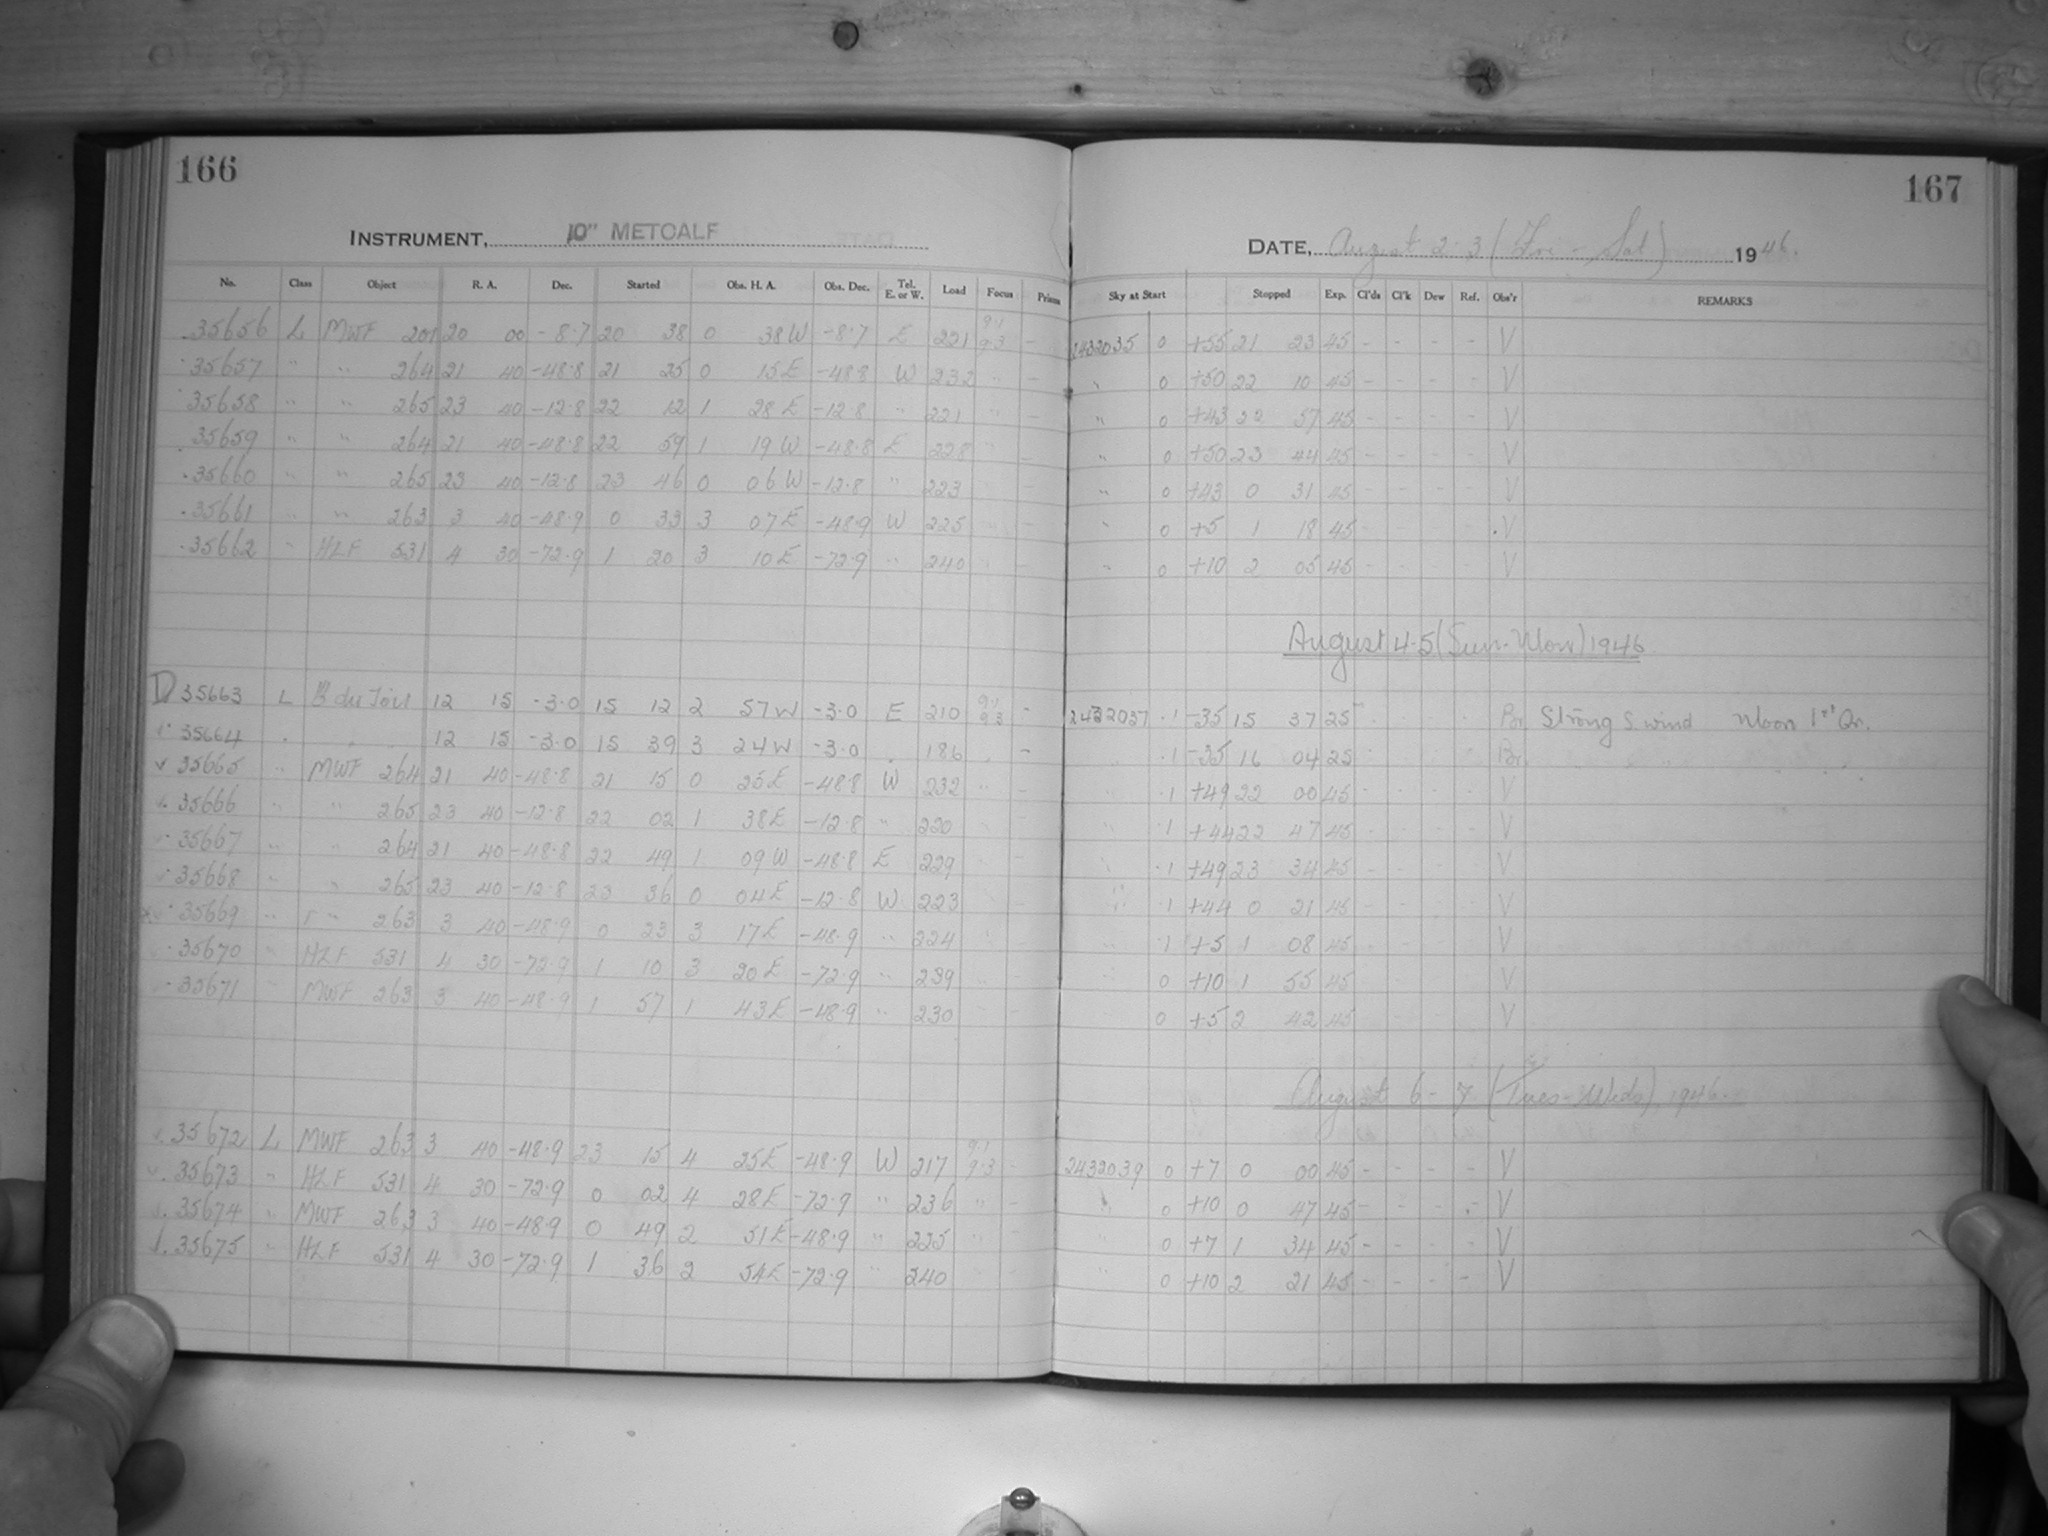 166
INSTRUMENT, 10" METCALF
No. Class Object R. A. Dec. Started Obs. H. A. Obs. Dec. Tel. E. or W. Load Focus Prisms
.35656 L MWF 201 20 00 -8.7 20 38 0 38 W -8.7 E 221 9.1 9.3 -
.35657 " " 264 21 40 -48.8 21 25 0 15 E -48.8 W 232 " -
.35658 " " 265 23 40 -12.8 22 12 1 28 E -12.8 " 221 " -
.35659 " " 264 21 40 -48.8 22 59 1 19 W -48.8 E 228 " -
.35660 " " 265 23 40 -12.8 23 46 0 06 W -12.8 " 223 -
.35661 " " 263 3 40 -48.9 0 33 3 07 E -48.9 W 225 -
.35662 " HLF 531 4 30 -72.9 1 20 3 10 E -72.9 " 240 -
D 35663 L B du Toit 12 15 -3.0 15 12 2 57 W -3.0 E 210 9.1 9.3 -
35664 . . 12 15 -3.0 15 39 3 24 W -3.0 . 186 . -
v 35665 " MWF 264 21 40 -48.8 21 15 0 25 E -48.8 W 232 " -
v. 35666 " " 265 23 40 -12.8 22 02 1 38 E -12.8 " 220 " -
35667 " " 264 21 40 -48.8 22 49 1 09 W -48.8 E 229 -
35668 " " 265 23 40 -12.8 23 36 0 04 E -12.8 W 223 -
35669 " " 263 3 40 -48.9 0 23 3 17 E -48.9 " 224 -
.35670 " HLF 531 4 30 -72.9 1 10 3 20 E -72.9 " 239 " -
.35671 " MWF 263 3 40 -48.9 1 57 1 43 E -48.9 " 230 -
v. 35672 L MWF 263 3 40 -48.9 23 15 4 25 E -48.9 W 217 9.1 9.3 -
v. 35673 " HLF 531 4 30 -72.9 0 02 4 28 E -72.9 " 236 " -
.35674 " MWF 263 3 40 -48.9 0 49 2 51 E -48.9 " 225 "
.35675 " HLF 531 4 30 -72.9 1 36 2 54 E -72.9 " 240
167
DATE, August 2-3 (Fri - Sat) 1946.
Sky at Start Stopped Exp. Cl'ds Cl'k Dew Ref. Obs'r REMARKS
2432035 0 +55 21 23 45 - - - - V
" 0 +50 22 10 45 - - - - V
" 0 +43 22 57 45 - - - - V
" 0 +50 23 44 45 - - - - V
" 0 +43 0 31 45 - - - - V
" 0 +5 1 18 45 - - - - V
" 0 +10 2 05 45 - - - - V
August 4-5 (Sun-Mon) 1946
2432037 .1 -35 15 37 25 Strong S wind Moon 1st Qr.
.1 -35 16 04 25
.1 +49 22 00 45 - - - - V
.1 +44 22 47 45 - - - - V
.1 +49 23 34 45 - - - - V
.1 +44 0 21 45 - - - - V
.1 +5 1 08 45 - - - - V
0 +10 1 55 45 - - - - V
0 +5 2 42 45 - - - - V
August 6-7 (Tues-Weds), 1946.
2432039 0 +7 0 00 45 - - - - V
" 0 +10 0 47 45 - - - - V
" 0 +7 1 34 45 - - - - V
" 0 +10 2 21 45 - - - - V